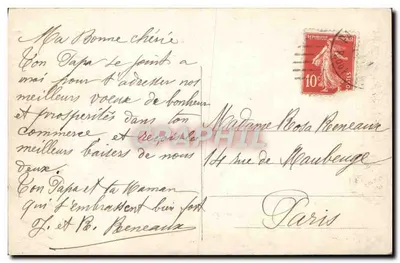 Ma Bonne chérie
Ton Papa se joint a
moi pour t'adresser nos
meilleurs voeux de bonheur
et prospérités dans ton
commerce et
meilleurs baisers de nous
deux.
Ton Papa et ta Maman
qui t'embrassent bien fort
J. et R. Reneaux
10c
Madame Rosa Reneaux
14 rue de Maubeuge
Paris